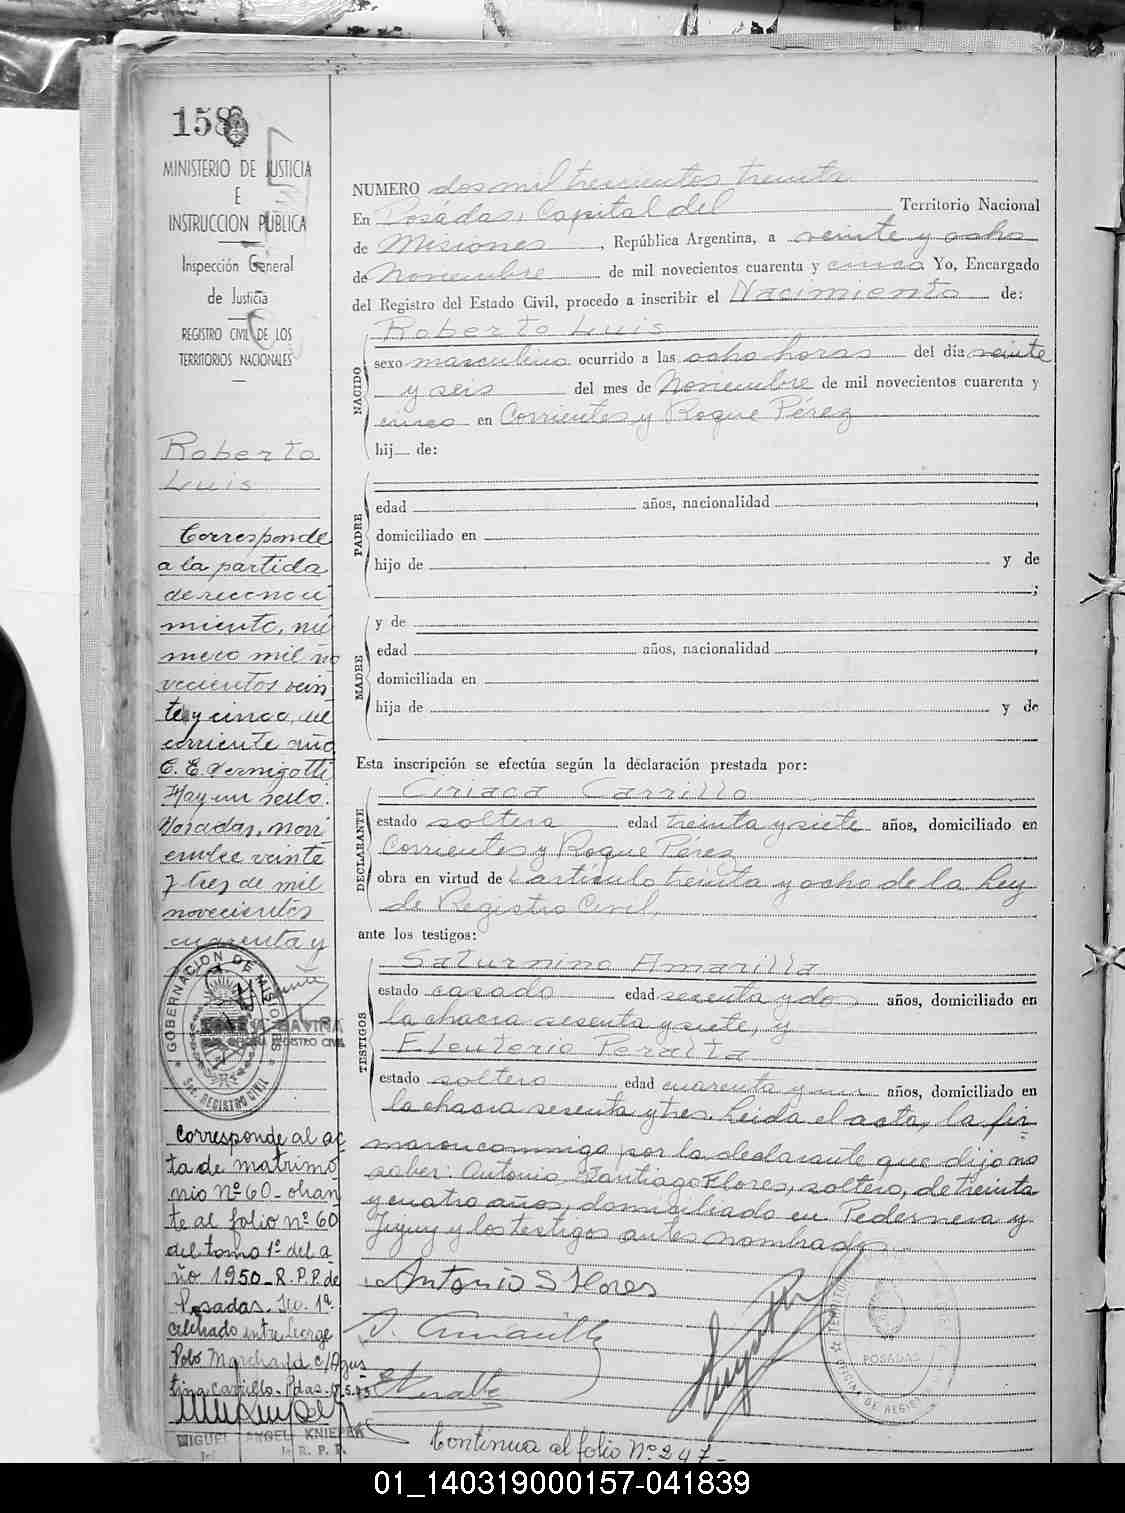 158
MINISTERIO DE JUSTICIA
E
INSTRUCCION PUBLICA
Inspección General
de Justicia
REGISTRO CIVIL DE LOS
TERRITORIOS NACIONALES
Roberto
Luis
Corresponde
a la partida
de reconoci
miento, nú
mero mil no
vecientos vein
te y cinco, del
corriente año
C. E. Vernigotti
Hay un sello.
Posadas, novi
embre veinte
y tres de mil
novecientos
cuarenta y
GOBERNACION DE MISIONES
Sec. REGISTRO CIVIL
REGISTRO CIVIL
Corresponde al ac
ta de matrimo
nio Nº 60 - obran
te al folio nº 60
del tomo 1º del a
ño 1950 - R.P.P. de
Posadas. Sec. 1ª.
celebrado entre Jorge
Polo Marchand c/ Agus
tina Carrillo. Pdas.
MIGUEL ANGEL KNIEPER
R. P. P.
NUMERO dos mil trescientos treinta
En Posadas, Capital del Territorio Nacional
de Misiones, República Argentina, a veinte y ocho
de Noviembre de mil novecientos cuarenta y cinco Yo, Encargado
del Registro del Estado Civil, procedo a inscribir el Nacimiento de:
NACIDO
Roberto Luis
sexo masculino ocurrido a las ocho horas del día veinte
y seis del mes de Noviembre de mil novecientos cuarenta y
cinco en Corrientes y Roque Pérez
hij de:
PADRE
edad años, nacionalidad ,
domiciliado en
hijo de y de
;
MADRE
y de
edad años, nacionalidad ,
domiciliada en
hija de y de
Esta inscripción se efectúa según la declaración prestada por:
DECLARANTE
Ciriaca Carrillo
estado soltera edad treinta y siete años, domiciliado en
Corrientes y Roque Pérez
obra en virtud de l artículo treinta y ocho de la Ley
de Registro Civil,
ante los testigos:
TESTIGOS
Saturnino Amarilla
estado casado edad sesenta y dos años, domiciliado en
la chacra sesenta y siete, y
Eleuterio Peralta
estado soltero edad cuarenta y un años, domiciliado en
la chacra sesenta y tres. Leida el acta, la fir
maron conmigo por la declarante que dijo no
saber: Antonio Santiago Flores, soltero, de treinta
y cuatro años, domiciliado en Pedernera y
Jujuy y los testigos antes nombrados.
Antonio S Flores
S. Amarilla
E Peralta
POSADAS
Continua al folio Nº 247 -
01_140319000157-041839